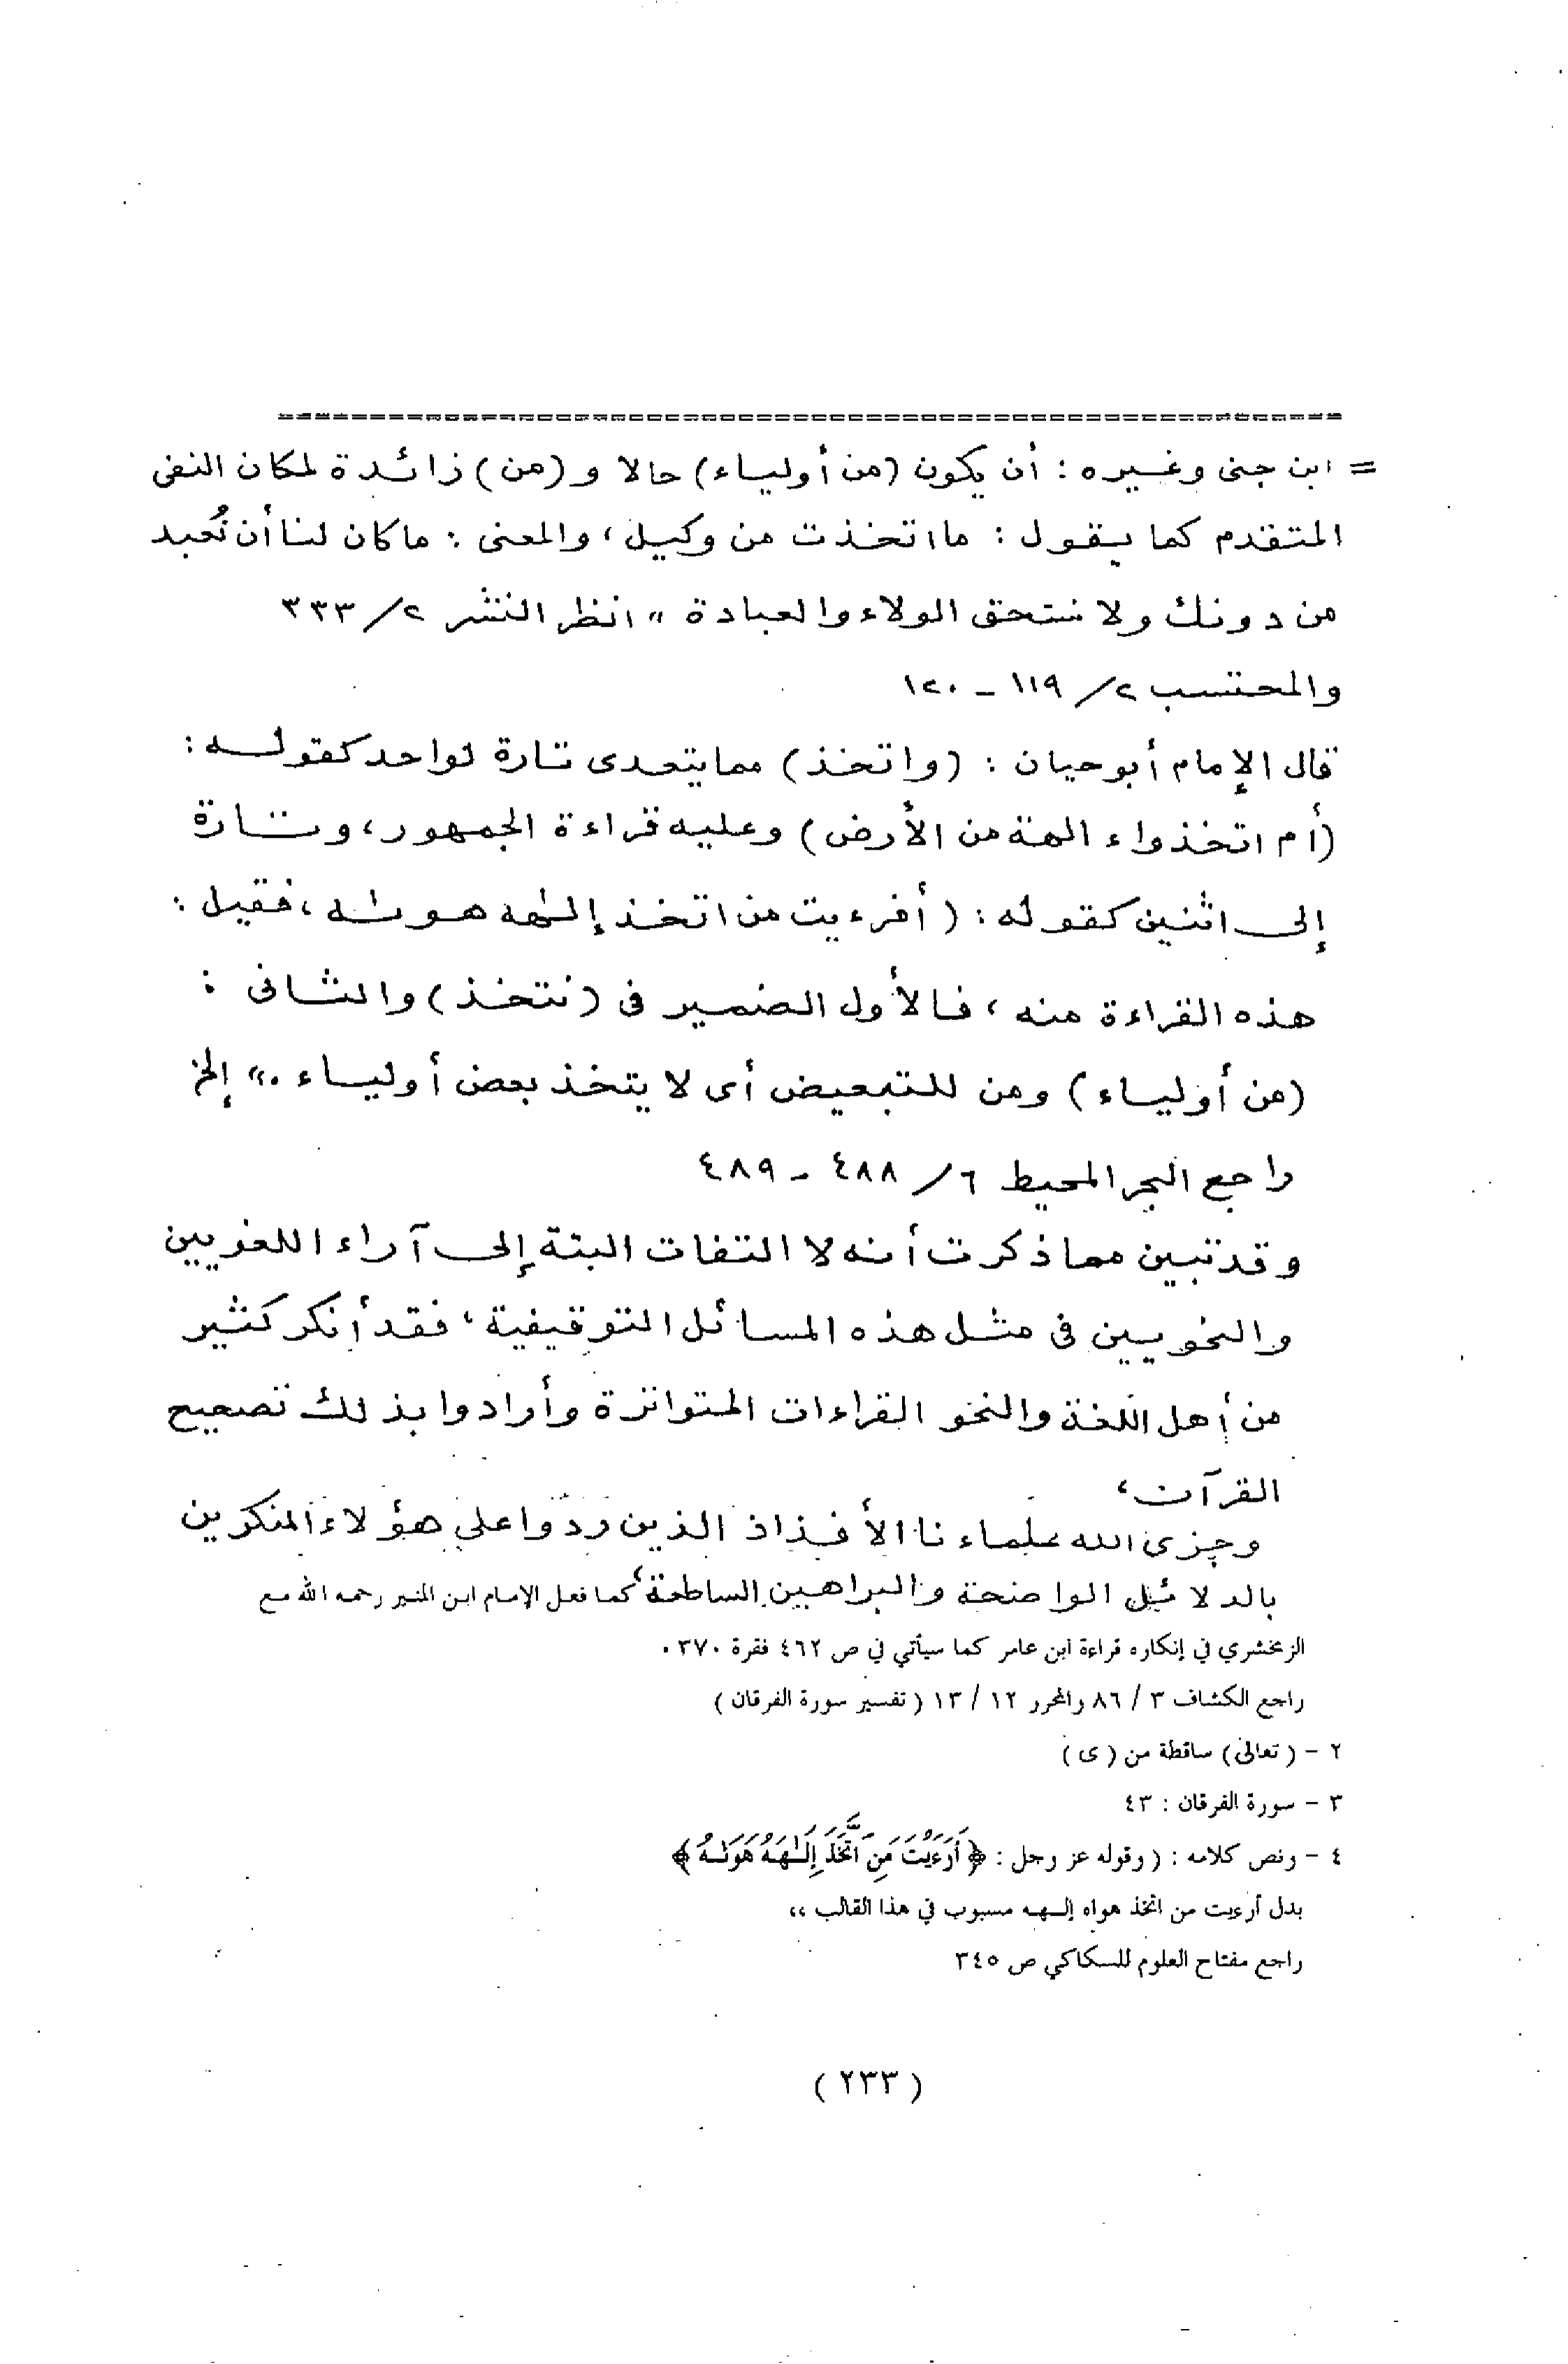 = ابن جنى وغيره : أن يكون (من أولياء) حالا و (من) زائدة لمكان النفى
المتقدم كما يقول : ما اتخذت من وكيل، والمعنى : ما كان لنا أن نُعبد
من دونك ولا نستحق الولاء والعبادة " انظر النشر ٢/ ٣٣٣
والمحتسب ٢/ ١١٩ - ١٢٠
قال الإمام أبو حيان : (واتخذ) مما يتعدى تارة لواحد كقوله :
(أم اتخذوا ءالهة من الأرض) وعليه قراءة الجمهور، وتارة
إلى اثنين كقوله : ( أفرءيت من اتخذ إلٰهه هوىٰه ، فقيل :
هذه القراءة منه ، فالأول الضمير فى (نتخذ) والثانى :
(من أولياء) ومن للتبعيض أى لا يتخذ بعض أولياء ." إلخ
راجع البحر المحيط ٦/ ٤٨٨ - ٤٨٩
وقد تبين مما ذكرت أنه لا التفات البتة إلى آراء اللغويين
والنحويين فى مثل هذه المسائل التوقيفية ، فقد أنكر كثير
من أهل اللغة والنحو القراءات المتواترة وأرادوا بذلك تصحيح
القرآن ،
وجزى الله علماءنا الأفذاذ الذين ردوا على هؤلاء المنكرين
بالدلائل الواضحة والبراهين الساطعة ، كما فعل الإمام ابن المنير رحمه الله مع
الزمخشري في إنكاره قراءة ابن عامر كما سيأتي في ص ٤٦٢ فقرة ٣٧٠ .
راجع الكشاف ٣ / ٨٦ والمحرر ١٢ / ١٣ ( تفسير سورة الفرقان )
٢ - ( تعالى ) ساقطة من ( ى )
٣ - سورة الفرقان : ٤٣
٤ - ونص كلامه : ( وقوله عز وجل : ﴿ أَرَءَيْتَ مَنِ ٱتَّخَذَ إِلَـٰهَهُۥ هَوَىٰهُ ﴾
بدل أرءيت من اتخذ هواه إلـهـه مسبوب في هذا القالب ،،
راجع مفتاح العلوم للسكاكي ص ٣٤٥
( ٢٣٣ )